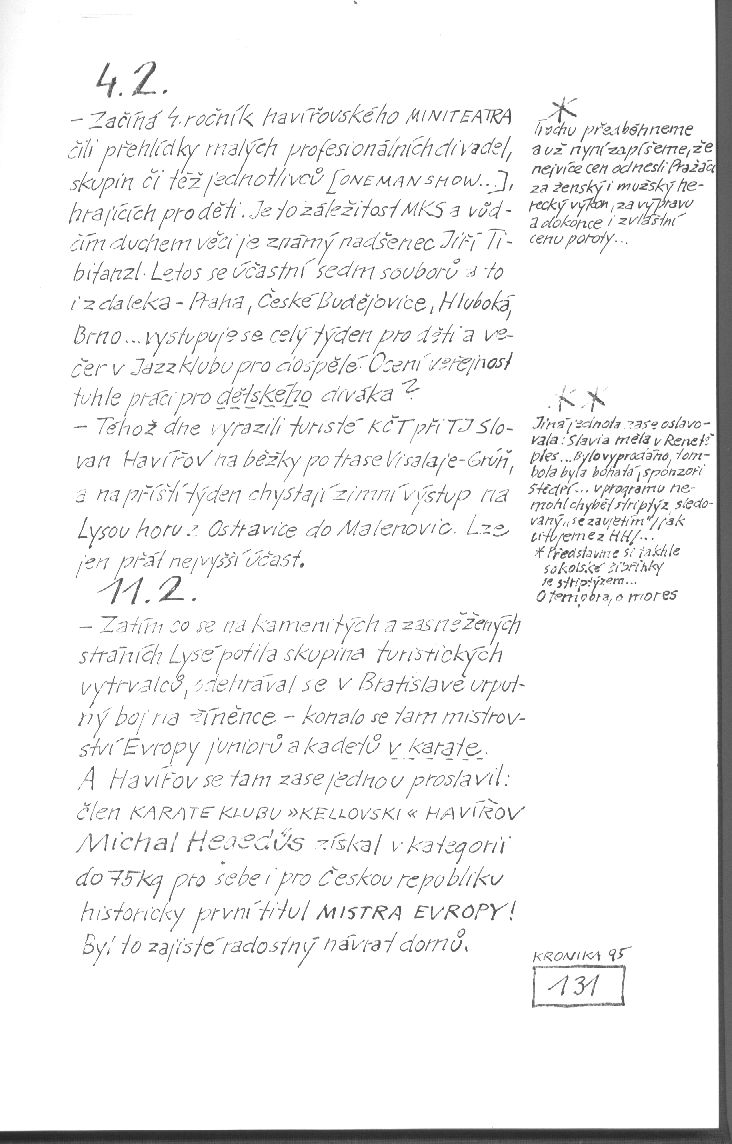 4.2.
– Začíná 4. ročník havířovského MINITEATRA
čili přehlídky malých profesionálních divadel,
skupin či též jednotlivců [ONEMANSHOW...],
hrajících pro děti. Je to záležitost MKS a vůd-
čím duchem věci je známý nadšenec Jiří Ti-
bitanzl. Letos se účastní sedm souborů a to
i z daleka – Praha, České Budějovice, Hluboká,
Brno... vystupuje se celý týden pro děti a ve-
čer v Jazzklubu pro dospělé. Ocení veřejnost
tuhle práci pro dětského diváka?
– Téhož dne vyrazili turisté KČT při TJ Slo-
van Havířov na běžky po trase Visalaje-Grúň,
a na příští týden chystají zimní výstup na
Lysou horu z Ostravice do Malenovic. Lze
jen přát nejvyšší účast.
11.2.
– Zatím co se na kamenitých a zasněžených
stráních Lysé potila skupina turistických
vytrvalců, odehrával se v Bratislavě urput-
ný boj na žíněnce – konalo se tam mistrov-
ství Evropy juniorů a kadetů v karate.
A Havířov se tam zase jednou proslavil:
člen KARATE KLUBU »KELLOVSKI« HAVÍŘOV
Michal Hegedűs získal v kategorii
do 75kg pro sebe i pro Českou republiku
historicky první titul MISTRA EVROPY!
Byl to zajisté radostný návrat domů.
*
Trochu předběhneme
a už nyní zapíšeme, že
nejvíce cen odnesli Pražáci
za ženský i mužský he-
recký výkon, za výpravu
a dokonce i zvláštní
cenu poroty...
**
Jiná jednota zase oslavo-
vala: Slavia měla v Renetě
ples... Bylo vyprodáno, tom-
bola byla bohatá, sponzoři
štědří... v programu ne-
mohl chybět striptýz sledo-
vaný „se zaujetím" /jak
citujeme z HH/...
* Představme si takhle
sokolské šibřinky
se striptýzem...
O tempora, o mores
KRONIKA 95
131